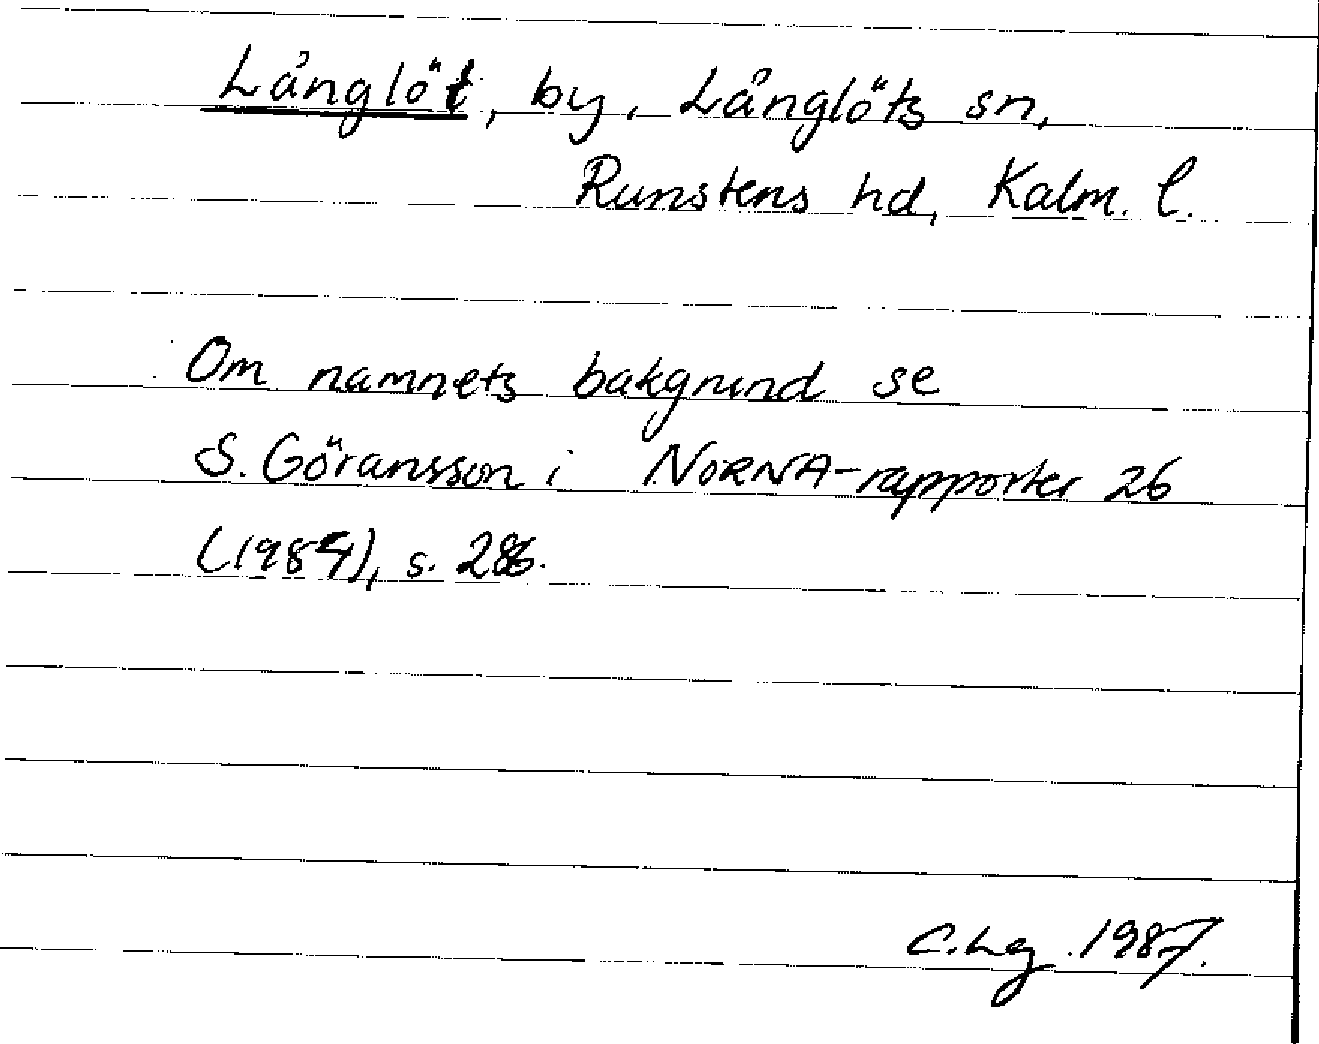 Långlöt, by, Långlöts sn,
Runstens hd, Kalm. l.
Om namnets bakgrund se
S. Göransson i NORNA-rapporter 26
(1984), s. 286.
C. Lg 1987.